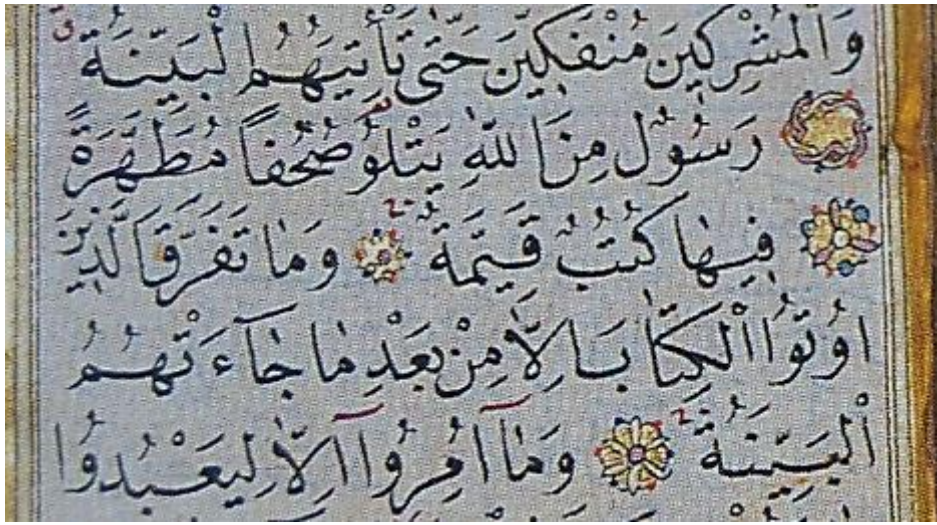 وَالْمُشْرِكِينَ مُنْفَكِّينَ حَتّٰى تَأْتِيَهُمُ الْبَيِّنَةُ
رَسُولٌ مِنَ اللّٰهِ يَتْلُو صُحُفاً مُطَهَّرَةً
فِيهَا كُتُبٌ قَيِّمَةٌ وَمَا تَفَرَّقَ الَّذِينَ
اُوتُوا الْكِتَابَ اِلَّا مِنْ بَعْدِ مَا جَاءَتْهُمُ
الْبَيِّنَةُ وَمَا اُمِرُوا اِلَّا لِيَعْبُدُوا